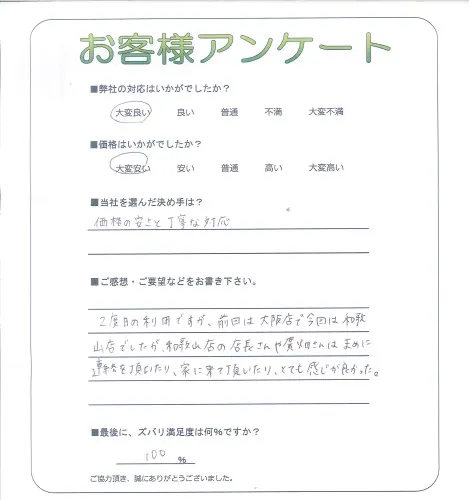 お客様アンケート
■弊社の対応はいかがでしたか？
大変良い 良い 普通 不満 大変不満
■価格はいかがでしたか？
大変安い 安い 普通 高い 大変高い
■当社を選んだ決め手は？
価格の安さと丁寧な対応
■ご感想・ご要望などをお書き下さい。
2度目の利用ですが、前回は大阪店で今回は和歌
山店でしたが、和歌山店の店長さんや貴畑さんはまめに
連絡を頂いたり、家に来て頂いたり、とても感じが良かった。
■最後に、ズバリ満足度は何％ですか？
100 %
ご協力頂き、誠にありがとうございました。